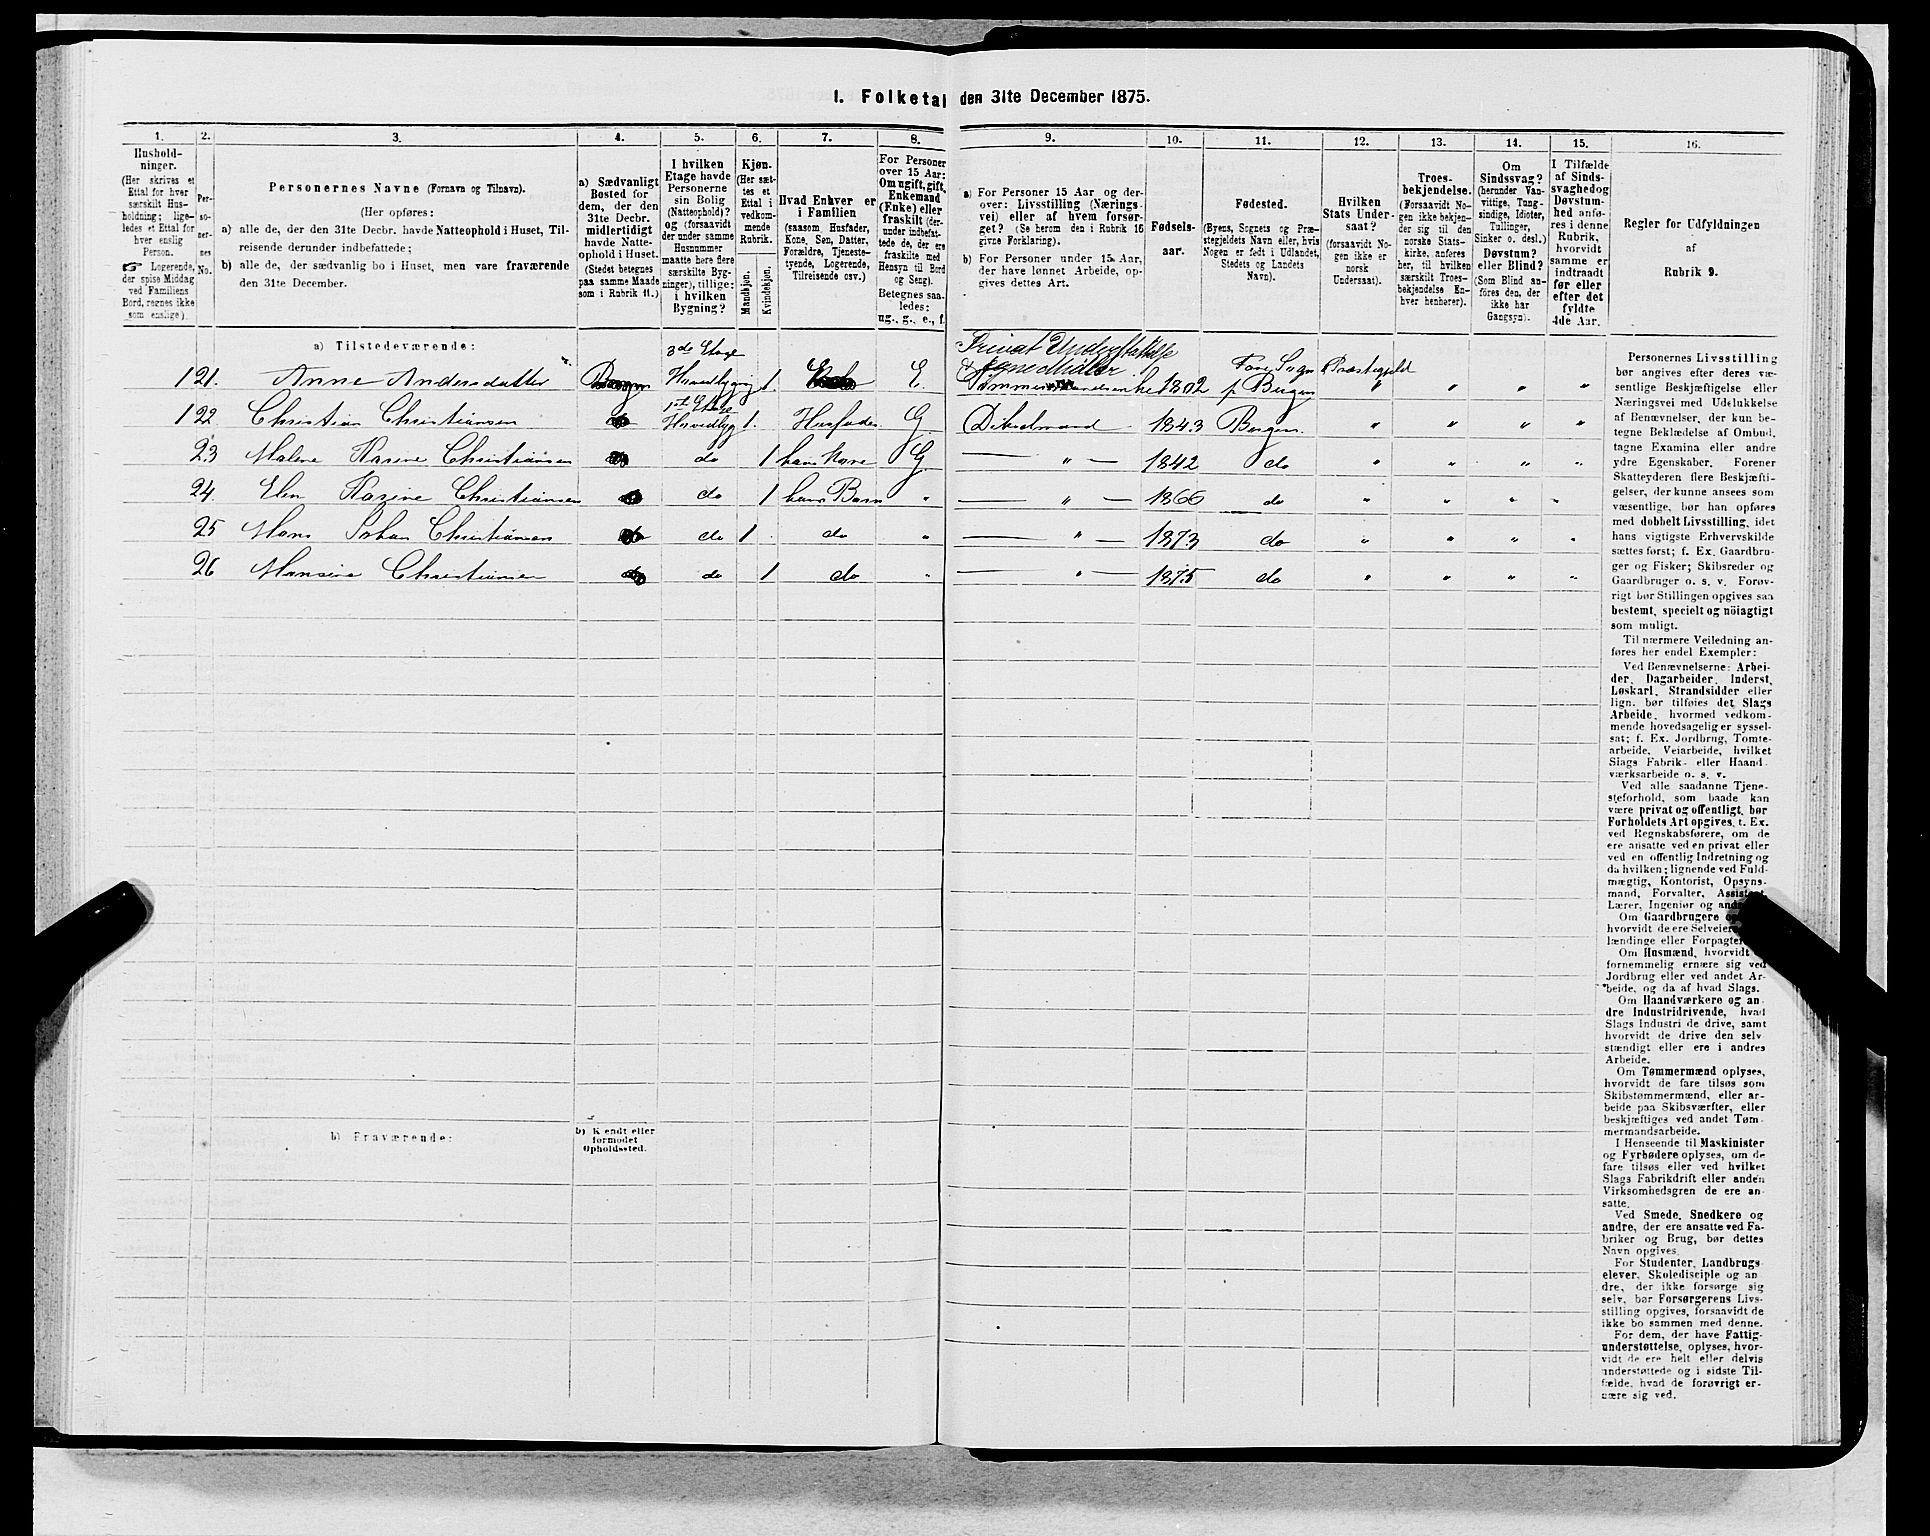 1. Folketal den 31te December 1875.
1.
Hushold-
ninger.
(Her skrives et
Ettal for hver
særskilt Hus-
holdning; lige-
ledes et Ettal for
hver enslig
Person.
☞ Logerende,
der spise Middag
ved Familiens
Bord, regnes ikke
som enslige).
2.
Per-
so-
ner-
nes
No.
3.
Personernes Navne (Fornavn og Tilnavn).
(Her opføres:
a) alle de, der den 31te Decbr. havde Natteophold i Huset, Til-
reisende derunder indbefattede;
b) alle de, der sædvanlig bo i Huset, men vare fraværende
den 31te December.
4.
a) Sædvanligt
Bosted for
dem, der den
31te Decbr.
midlertidigt
havde Natte-
ophold i Huset.
(Stedet betegnes
paa samme Maade
som i Rubrik 11.)
5.
I hvilken
Etage havde
Personerne
sin Bolig
(Natteophold)?
og (forsaavidt
der under samme
Husnummer
maatte høre flere
særskilte Byg-
ninger), tillige:
i hvilken
Bygning?
6.
Kjøn.
(Her sæt-
tes et
Ettal i
vedkom-
mende
Rubrik.
Mandkjøn.
Kvindekjøn.
7.
Hvad Enhver er
i Familien
(saasom Husfader,
Kone, Søn, Datter,
Forældre, Tjeneste-
tyende, Logerende,
Tilreisende osv.)
8.
For Personer
over 15 Aar:
Om ugift, gift,
Enkemand
(Enke) eller
fraskilt (der-
under indbefat-
tede de, der ere
fraskilte med
Hensyn til Bord
og Seng).
Betegnes saa-
ledes:
ug., g., e., f.
9.
a) For Personer 15 Aar og der-
over: Livsstilling (Nærings-
vei) eller af hvem forsør-
get? (Se herom den i Rubrik 16
givne Forklaring).
b) For Personer under 15 Aar,
der have lønnet Arbeide, op-
gives dettes Art.
10.
Fødsels-
aar.
11.
Fødested.
(Byens, Sognets og Præ-
stegjeldets Navn eller, hvis
Nogen er født i Udlandet,
Stedets og Landets
Navn).
12.
Hvilken
Stats Under-
saat?
(forsaavidt No-
gen ikke er
norsk
Undersaat).
13.
Troes-
bekjendelse.
(Forsaavidt No-
gen ikke bekjen-
der sig til den
norske Stats-
kirke, anføres
her, til hvilken
særskilt Troes-
bekjendelse En-
hver henhører).
14.
Om
Sindssvag?
(herunder Van-
vittige, Tung-
sindige, Idioter,
Tullinger,
Sinker o. desl.)
Døvstum?
eller Blind?
(Som Blind an-
føres den, der
ikke har
Gangsyn).
15.
I Tilfælde
af Sinds-
svaghed og
Døvstum-
hed anfø-
res i denne
Rubrik,
hvorvidt
samme er
indtraadt
før eller
efter det
fyldte
4de Aar.
16.
Regler for Udfyldningen
af
Rubrik 9.
a) Tilstedeværende:
3de Etage Privat Understøttelse
1 21. Anne Andersdatter Hovedbygnig 1 E. 1802 p Bergen " " "
1ste Etage
1 22 Christian Christiansen Hovedbyg 1. Husfader G 1843 Bergen " " " "
23 Malene Karine Christiansen do 1 hans Kone G " 1842 do " " " "
24. Elen Karine Christiansen do 1 hans Barn " " 1866 do " " " "
25 Hans Johan Christiansen do 1 do " " 1873 do " " " "
26 Hansine Christiansen do 1 do " " 1875 do " " " "
b) Fraværende:
b) Kjendt eller
formodet
Opholdssted.
Personernes Livsstilling
bør angives efter deres væ-
sentlige Beskjæftigelse eller
Næringsvei med Udelukkelse
af Benævnelser, der kun be-
tegne Beklædelse af Ombud,
tagne Examina eller andre
ydre Egenskaber. Forener
Skatteyderen flere Beskjæfti-
gelser, der kunne ansees som
væsentlige, bør han opføres
med dobbelt Livsstilling, idet
hans vigtigste Erhvervskilde
sættes først; f. Ex. Gaardbru-
ger og Fisker; Skibsreder og
Gaardbruger o. s. v. Forøv-
rigt bør Stillingen opgives saa
bestemt, specielt og nöiagtigt
som muligt.
Til nærmere Veiledning an-
føres her endel Exempler:
Ved Benævnelserne: Arbei-
der, Dagarbeider, Inderst,
Løskarl, Strandsidder eller
lign. bør tilføies det Slags
Arbeide, hvormed vedkom-
mende hovedsagelig er syssel-
sat; f. Ex. Jordbrug, Tomte-
arbeide, Veiarbeide, hvilket
Slags Fabrik- eller Haand-
værksarbeide o. s. v.
Ved alle saadanne Tjene-
steforhold, som baade kan
være privat og offentligt, bør
Forholdets Art opgives, t. Ex.
ved Regnskabsførere, om de
ere ansatte ved en privat eller
ved en offentlig Indretning og
da hvilken; lignende ved Fuld-
mægtig, Kontorist, Opsyns-
mand, Forvalter, Assistent,
Lærer, Ingeniør og
Om Gaardbrugere
hvorvidt de ere Selveiere
lændinge eller Forpagtere
Om Husmænd, hvorvidt
fornemmelig ernære sig ved
Jordbrug eller ved andet Ar-
beide, og da af hvad Slags.
Om Haandværkere og an-
dre Industridrivende, hvad
Slags Industri de drive, samt
hvorvidt de drive den selv-
stændigt eller ere i andres
Arbeide.
Om Tømmermænd oplyses,
hvorvidt de fare tilsøs som
Skibstømmermænd, eller ar-
beide paa Skibsværfter, eller
beskjæftiges ved andet Tøm-
mermandsarbeide.
I Henseende til Maskinister
og Fyrbødere oplyses, om de
fare tilsøs eller ved hvilket
Slags Fabrikdrift eller anden
Virksomhedsgren de ere an-
satte.
Ved Smede, Snedkere og
andre, der ere ansatte ved Fa-
briker og Brug, bør dettes
Navn opgives.
For Studenter, Landbrugs-
elever, Skoledisciple og an-
dre, der ikke forsørge sig
selv, bør Forsørgerens Livs-
stilling opgives, forsaavidt de
ikke bo sammen med denne.
For dem, der have Fattig-
understøttelse, oplyses, hvor-
vidt de ere helt eller delvis
understøttede og i sidste Til-
fælde, hvad de forøvrigt er-
nære sig ved.